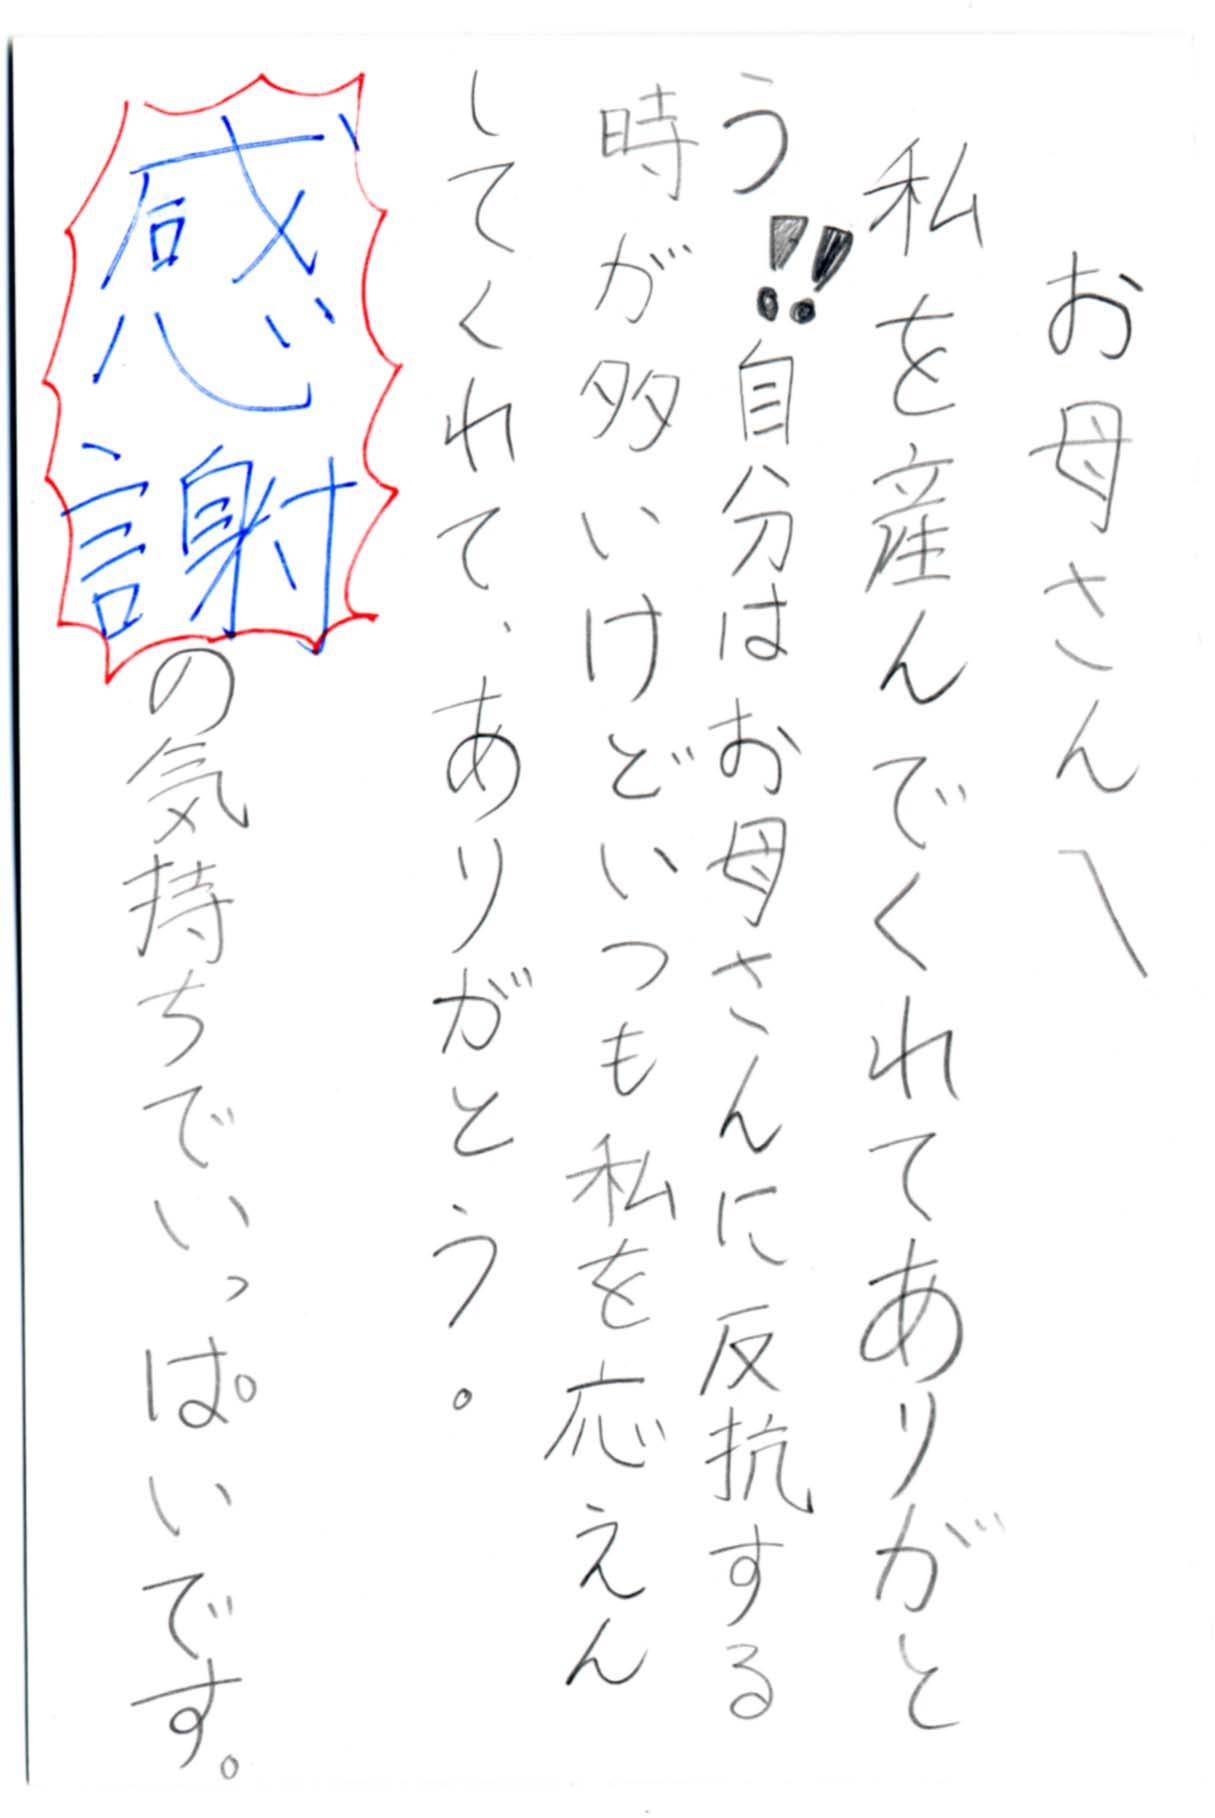 お母さんへ
私を産んでくれてありがと
う!!自分はお母さんに反抗する
時が多いけどいつも私を応えん
してくれて、ありがとう。
感謝の気持ちでいっぱいです。